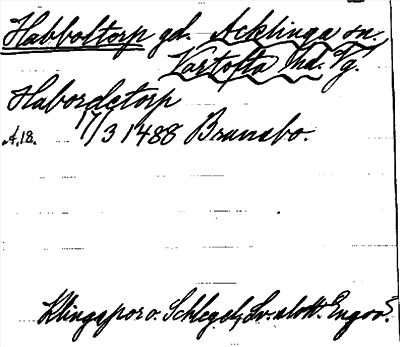 Habboltorp gd. Acklinga sn.
Vartofta hd. Vg.
Habordetorp
A.18. 17/3 1488 Brunsbo.
Klingspor o. Schlegel, Sv. slott. Engsö.